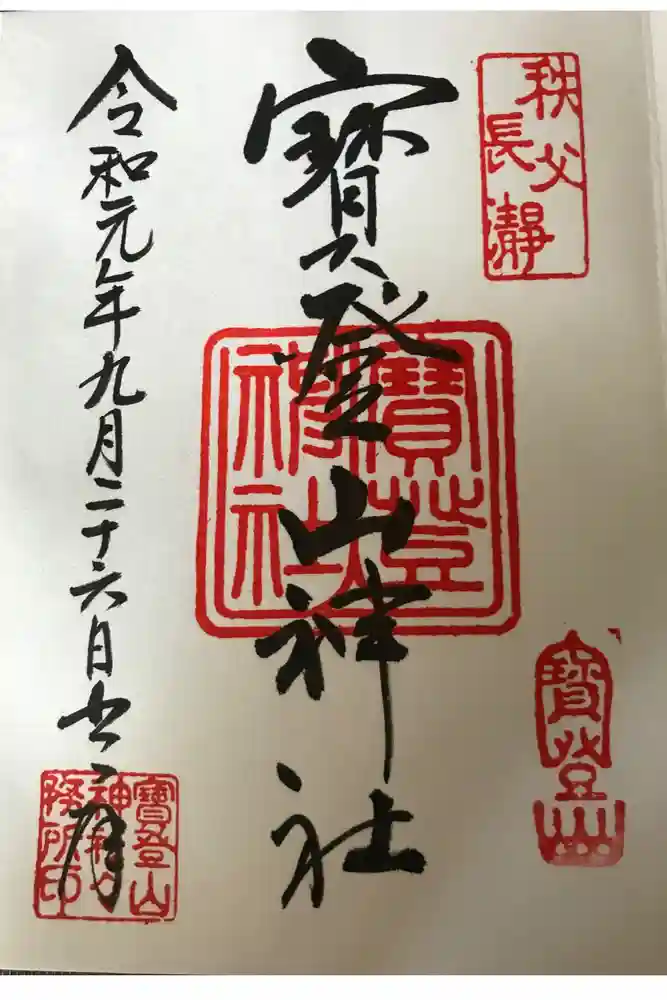 秩父
長瀞
寶登山神社
寶登
神社
寶登山
令和元年九月二十六日
寶登山
神社
務所印